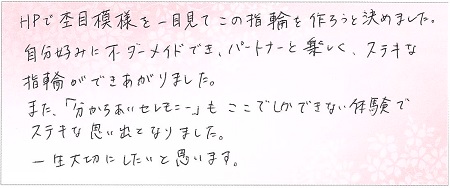 HPで杢目模様を一目見てこの指輪を作ろうと決めました。
自分好みにオーダーメイドでき、パートナーと楽しく、ステキな
指輪ができあがりました。
また、「分かちあいセレモニー」もここでしかできない体験で
ステキな思い出となりました。
一生大切にしたいと思います。